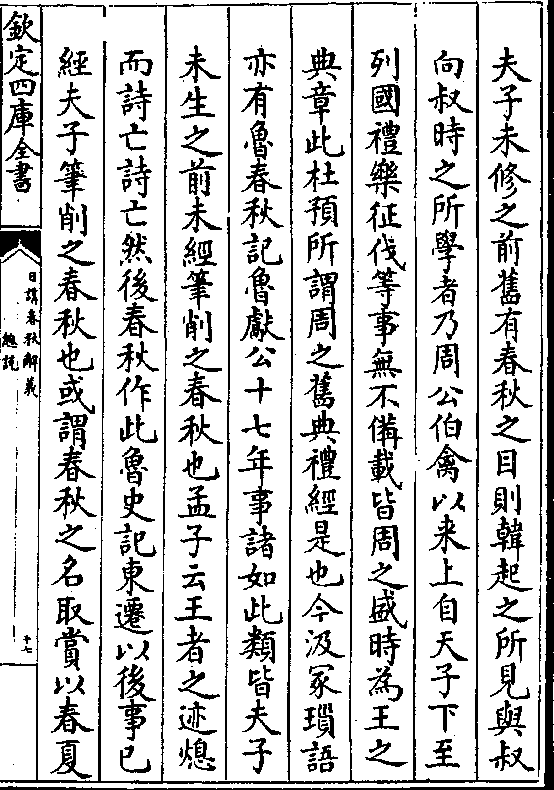 夫子未修之前舊有春秋之目則韓起之所見與叔
向叔時之所學者乃周公伯禽以来上自天子下至
列國禮樂征伐等事無不備載皆周之盛時為王之
典章此杜預所謂周之舊典禮經是也今汲冢瑣語
亦有魯春秋記魯獻公十七年事諸如此類皆夫子
未生之前未經筆削之春秋也孟子云王者之迹熄
而詩亡詩亡然後春秋作此魯史記東遷以後事已
經夫子筆削之春秋也或謂春秋之名取賞以春夏
欽定四庫全書
日講春秋解義
總說
十七